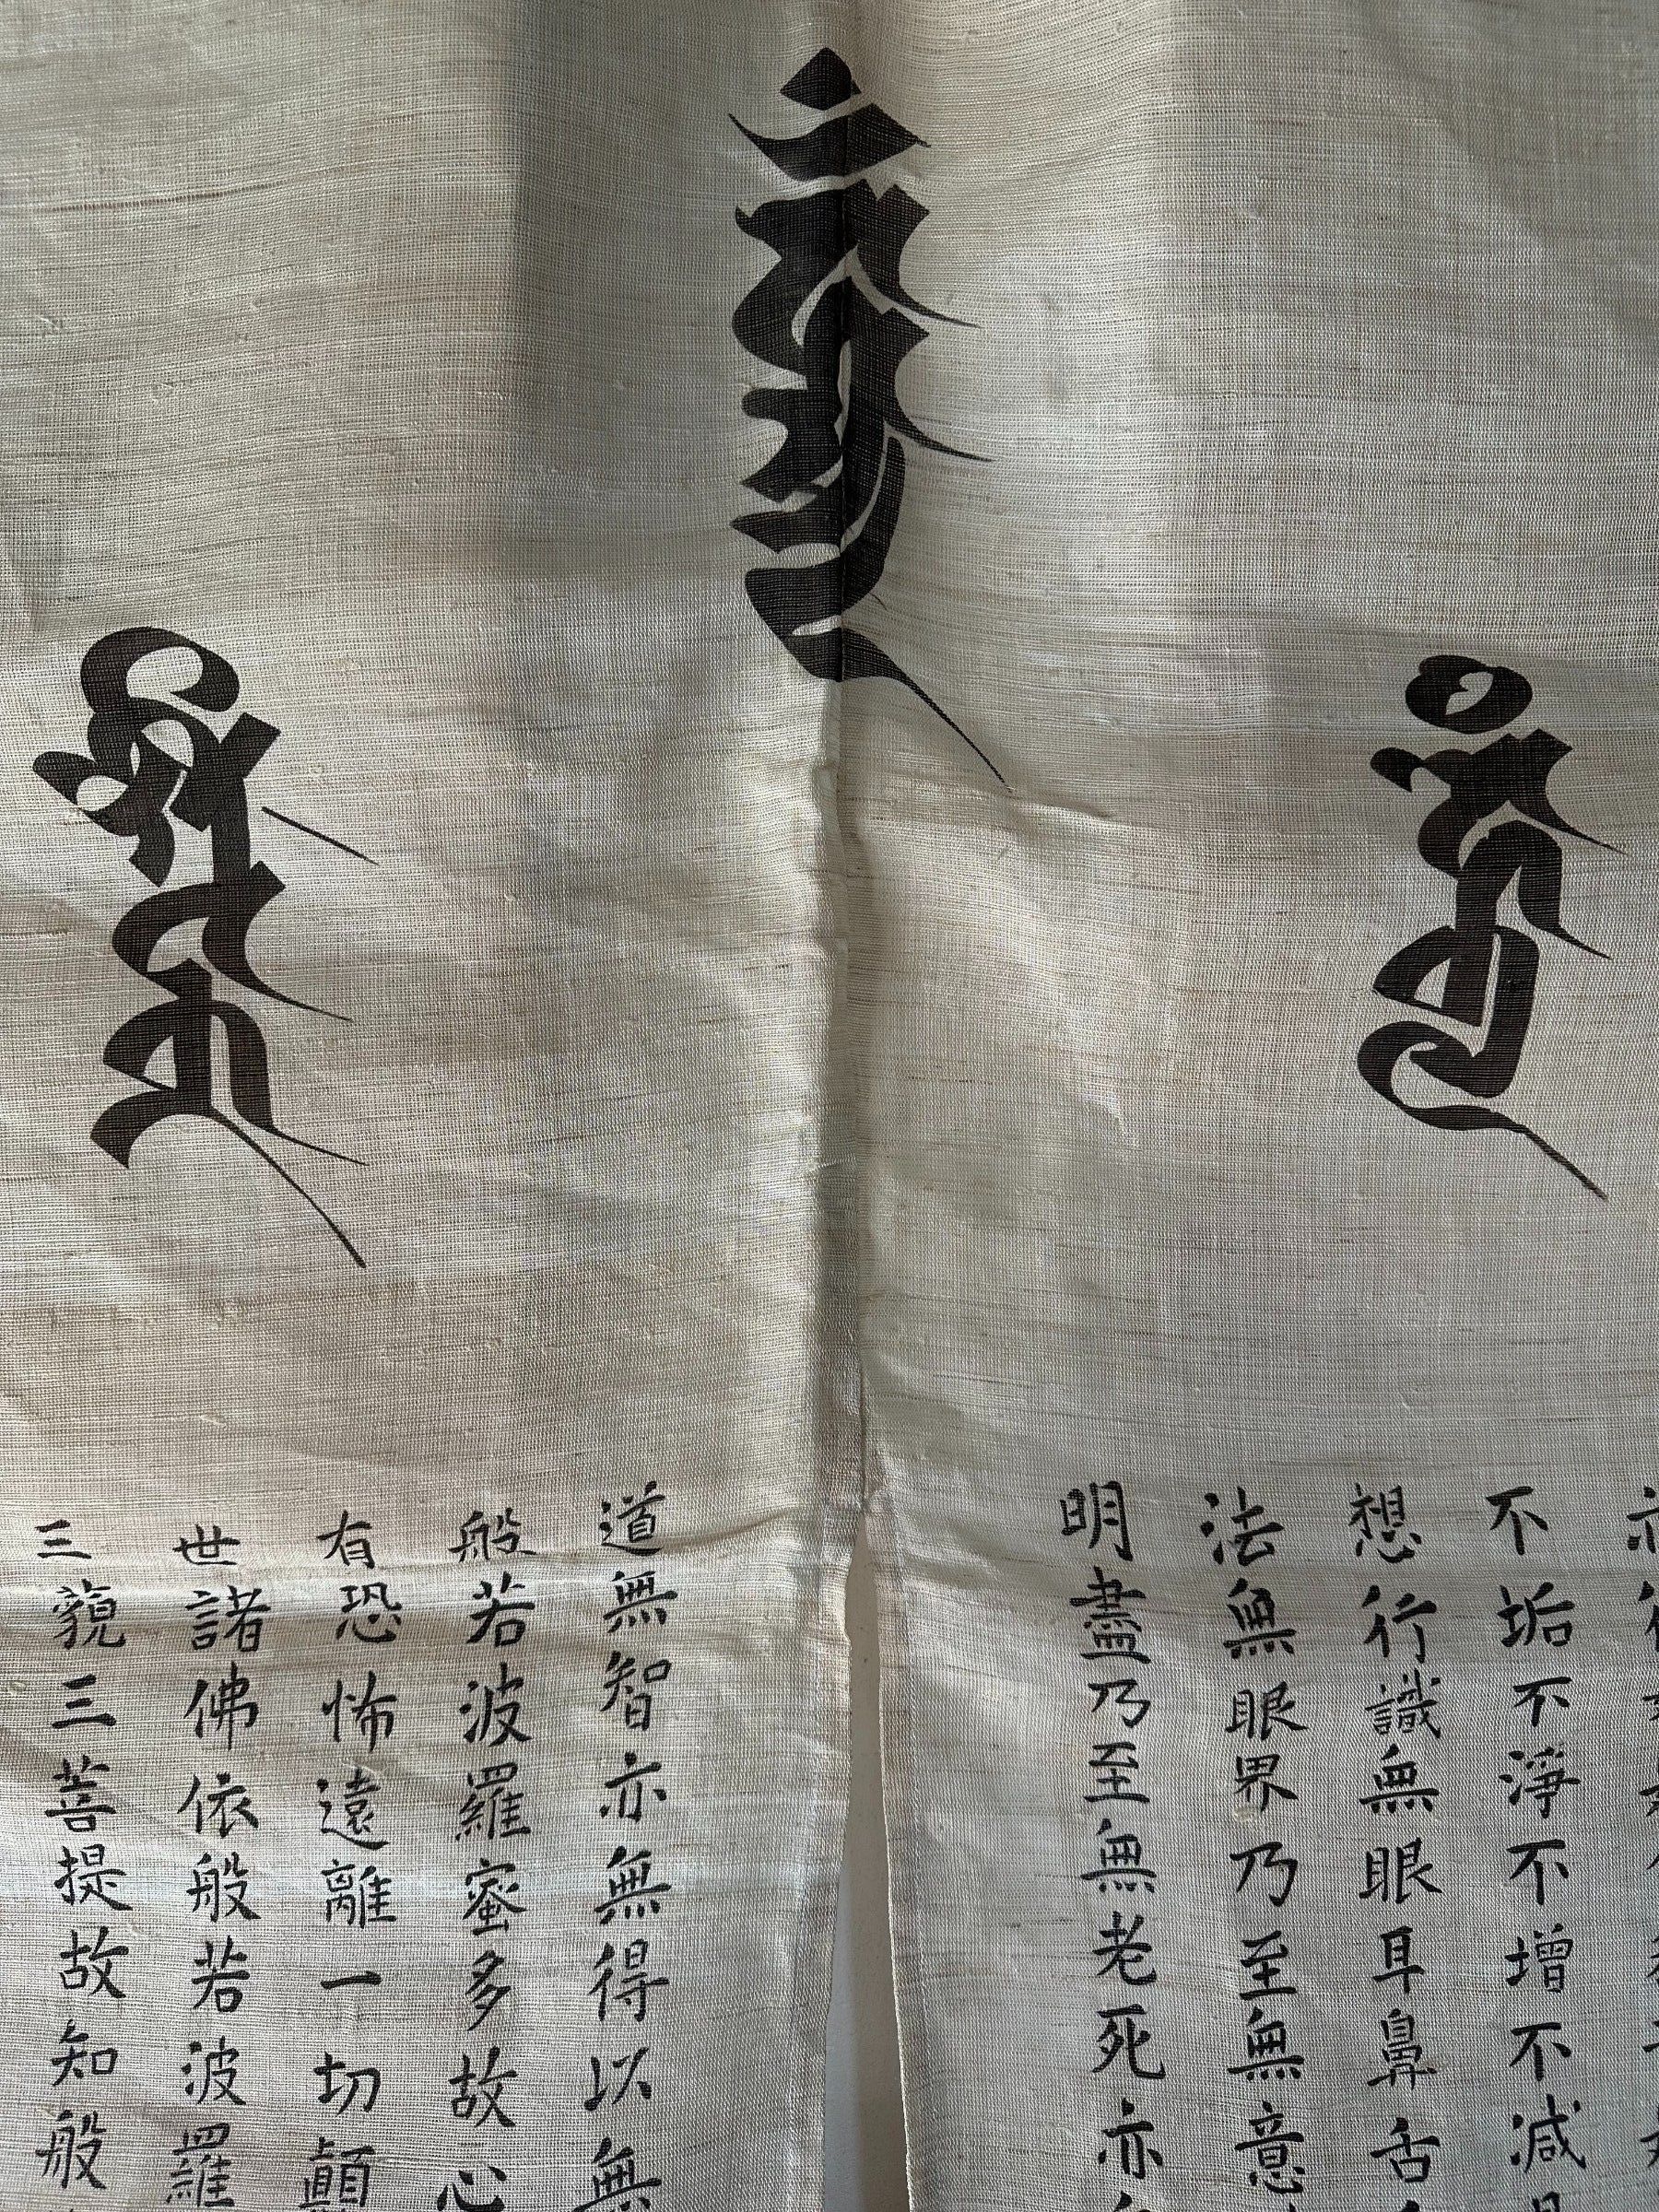 不垢不淨不增不減
想行識無眼耳鼻舌
法無眼界乃至無意
明盡乃至無老死亦
道無智亦無得以無
般若波羅蜜多故心
有恐怖遠離一切顛
世諸佛依般若波羅
三藐三菩提故知般